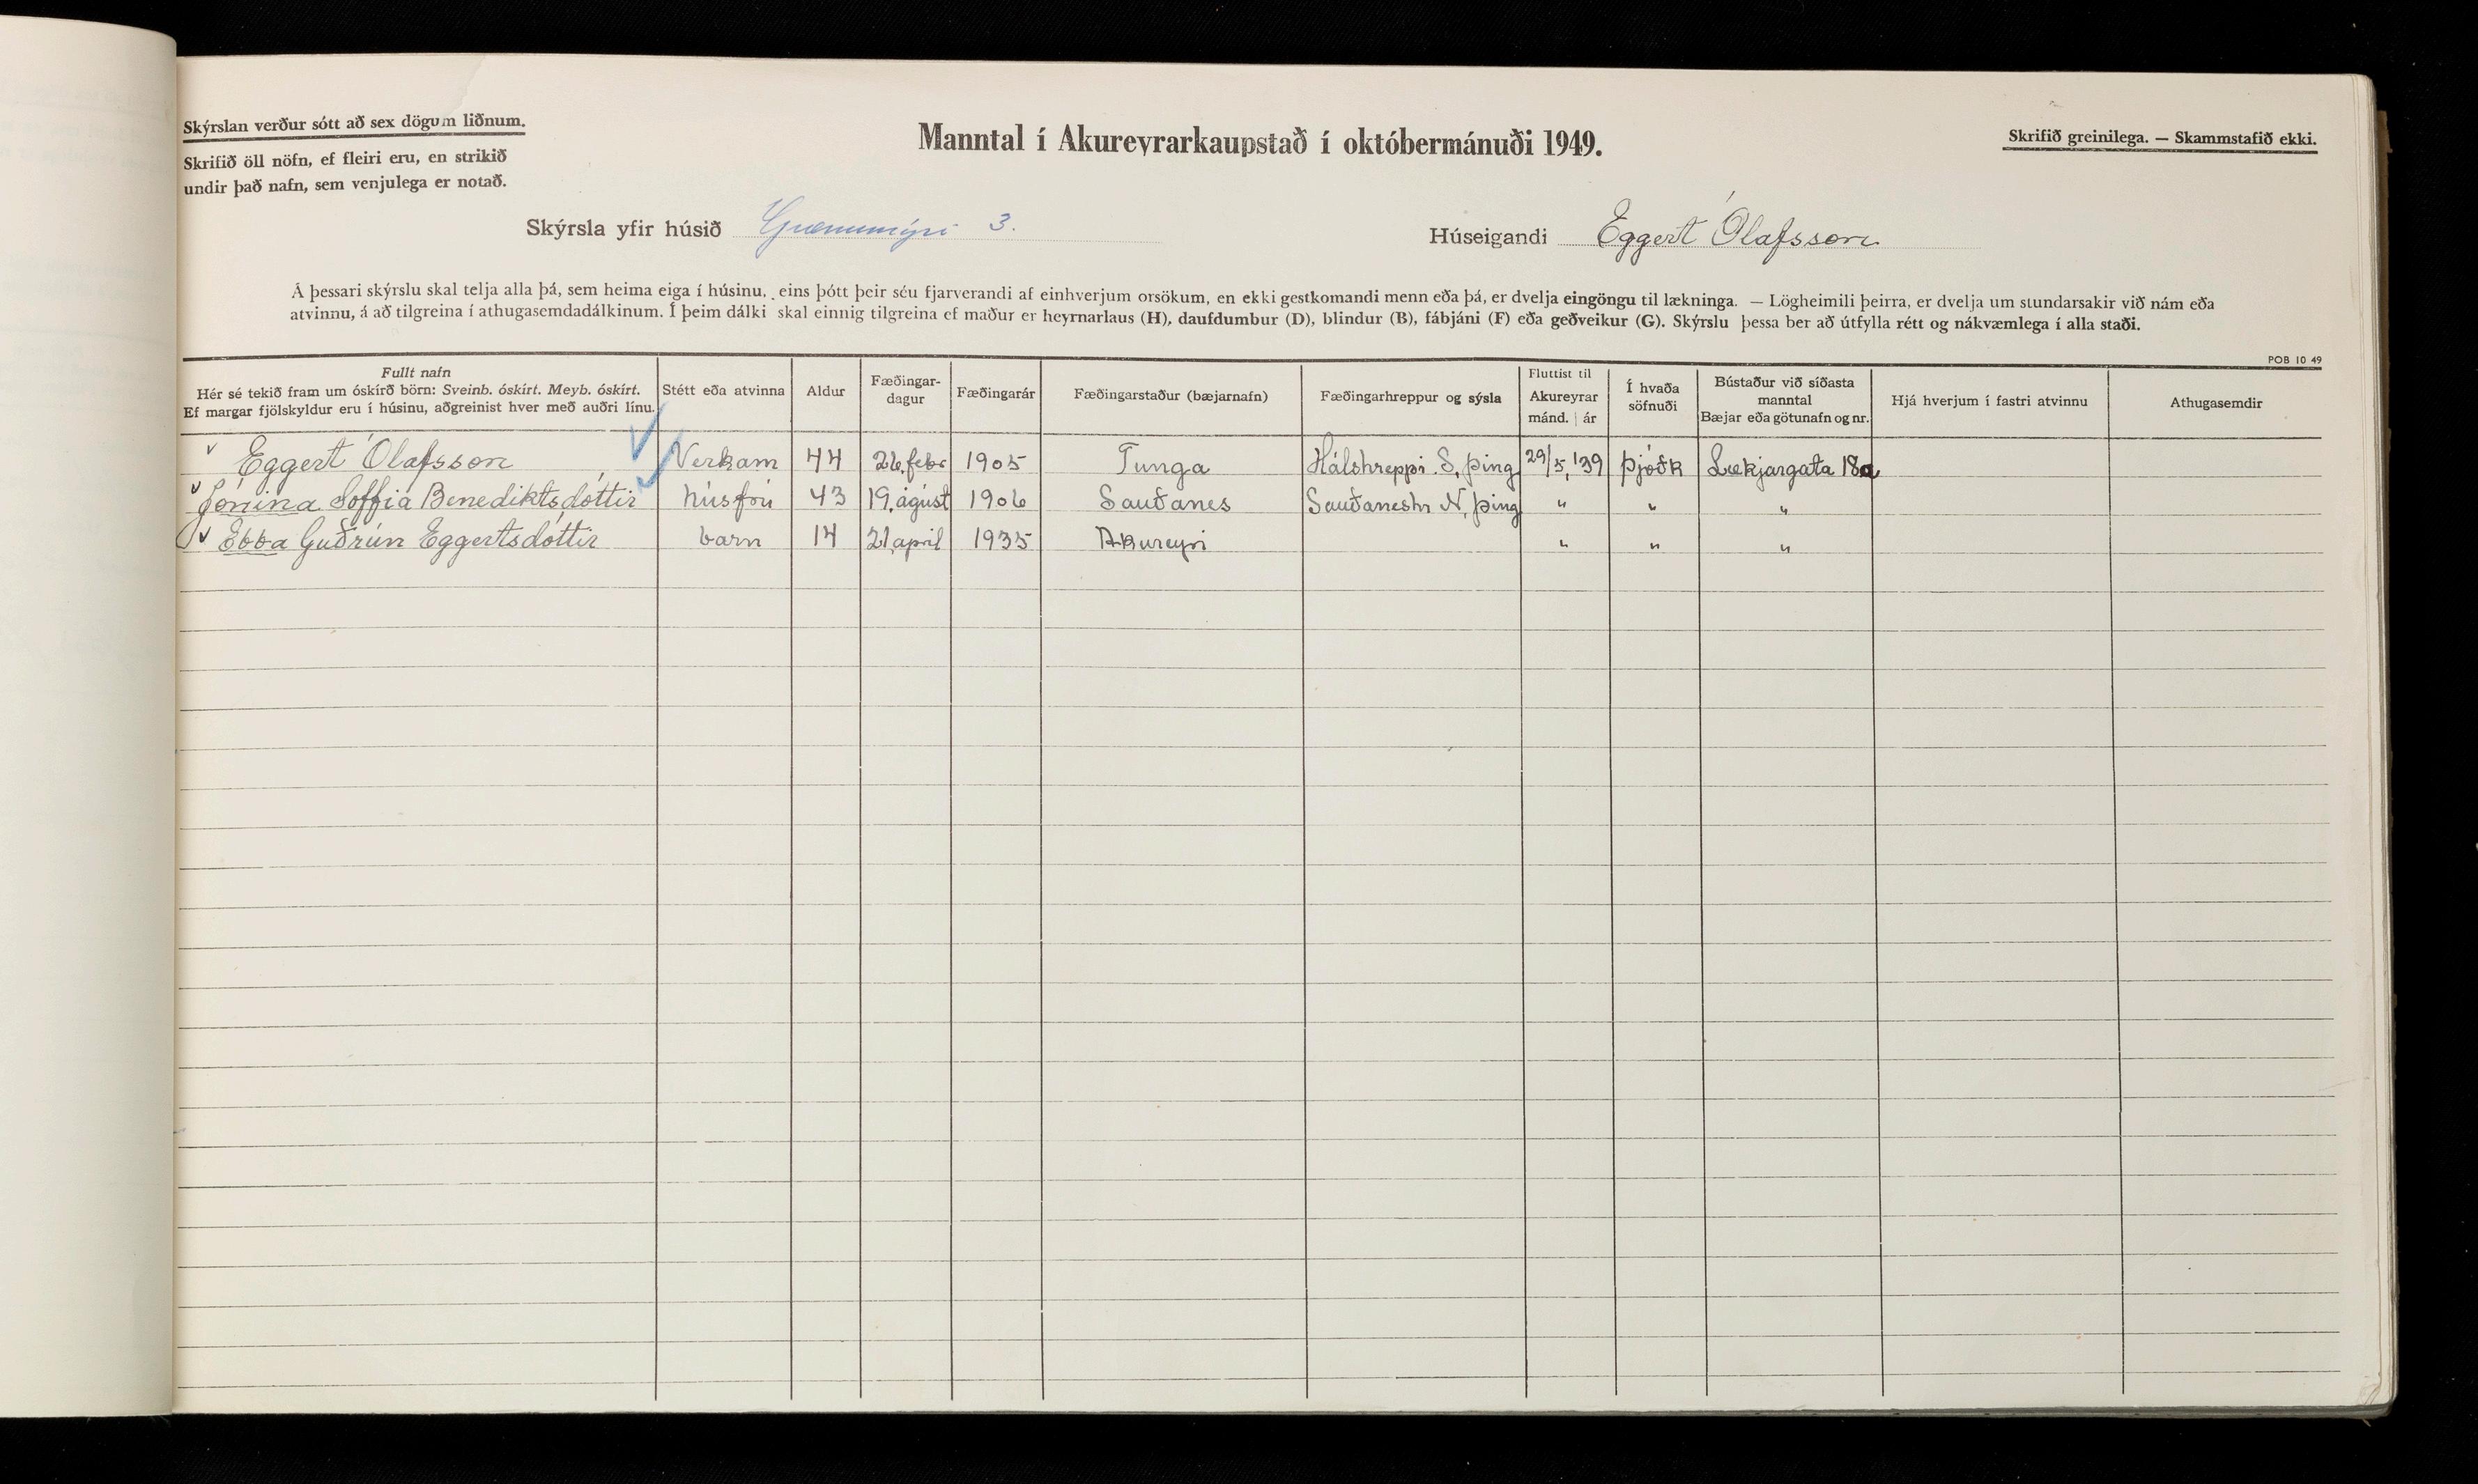 Skýrslan verður sótt að sex dögum liðnum.
Skrifið öll nöfn, ef fleiri eru, en strikið
undir það nafn, sem venjulega er notað.
Manntal í Akureyrarkaupstað í októbermánuði 1949.
Skrifið greinilega. — Skammstafið ekki.
Skýrsla yfir húsið Grænumýri 3.
Húseigandi Eggert Ólafsson
Á þessari skýrslu skal telja alla þá, sem heima eiga í húsinu, eins þótt þeir séu fjarverandi af einhverjum orsökum, en ekki gestkomandi menn eða þá, er dvelja eingöngu til lækninga. — Lögheimili þeirra, er dvelja um stundarsakir við nám eða
atvinnu, á að tilgreina í athugasemdadálkinum. Í þeim dálki skal einnig tilgreina ef maður er heyrnarlaus (H), daufdumbur (D), blindur (B), fábjáni (F) eða geðveikur (G). Skýrslu þessa ber að útfylla rétt og nákvæmlega í alla staði.
POB 10 49
Fullt nafn
Hér sé tekið fram um óskírð börn: Sveinb. óskírt. Meyb. óskírt.
Ef margar fjölskyldur eru í húsinu, aðgreinist hver með auðri línu.
Stétt eða atvinna
Aldur
Fæðingar-
dagur
Fæðingarár
Fæðingarstaður (bæjarnafn)
Fæðingarhreppur og sýsla
Fluttist til
Akureyrar
mánd. | ár
Í hvaða
söfnuði
Bústaður við síðasta
manntal
Bæjar eða götunafn og nr.
Hjá hverjum í fastri atvinnu
Athugasemdir
Eggert Ólafsson Verkam 44 26. febr 1905 Tunga Hálshreppi S, þing 29/5, '39 Þjóðk Lækjargata 18a
Jónína Soffía Benediktsdóttir húsfrú 43 19. ágúst 1906 Sauðanes Sauðaneshr N, þing " " "
Ebba Guðrún Eggertsdóttir barn 14 21. apríl 1935 Akureyri " " "